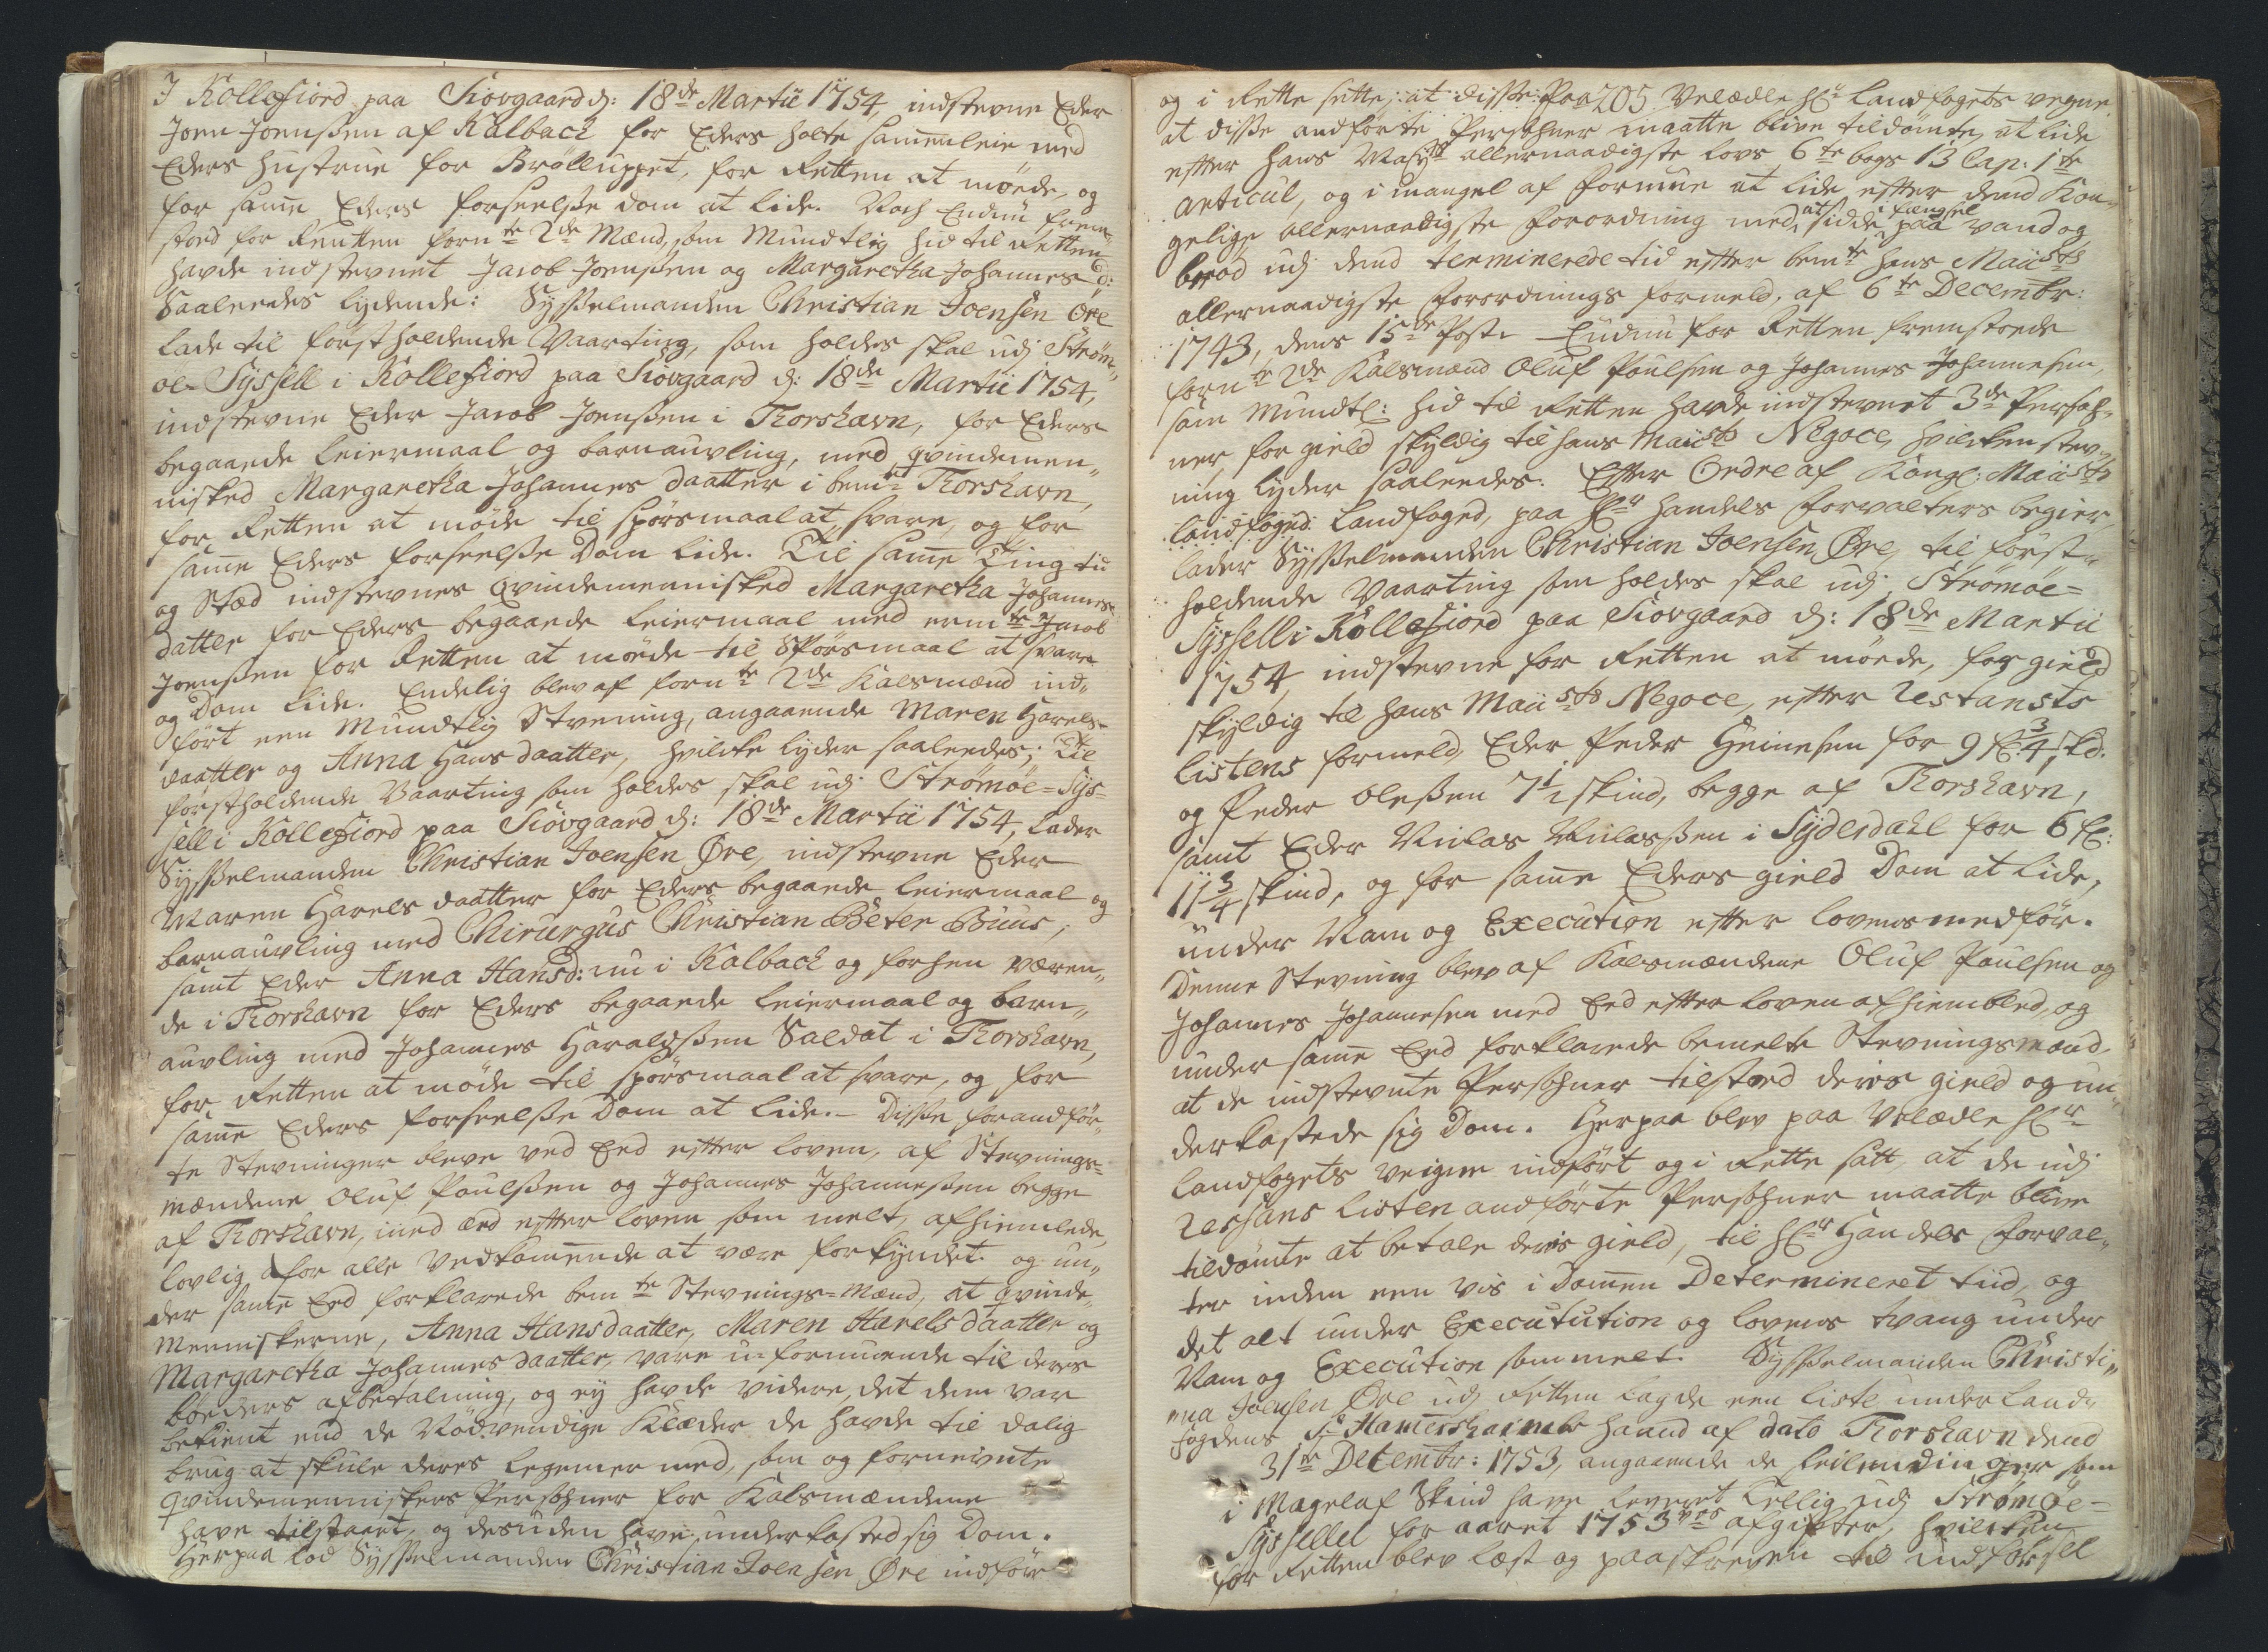 I Kollefiord paa Siovgaard d: 18de Martii 1754, indstevne Eder
Joen Joenssen af Kalback for Eders holte sammenleie med
Eders Hustrue for Brölluppet, for Retten at möede, og
for samme Eders forseelsse dom at lide. Noch Endnu frem¬
stod for Rætten fornte 2de Mænd, som Mundtlig hid til Retten
havde indstevnet Jacob Joenssen og Margaretha Johannes D:
Saaledes lydende: Sysselmanden Christian Joensen Öre
lade til förstholdende Vaarting, som holdes skal udj Ström¬
öe Syssell i Kollefiord paa Siövgaard d: 18de Martii 1754,
indstevne Eder Jacob Joenssen i Thorshavn, for Eders
begaaede Leiermaal og barnauvling, med qvindemen¬
nisked Margaretha Johannes daatter i bemte Thorshavn,
for Retten at möde til spörsmaal at svare, og for
samme Eders forseelsse Dom lide. Til samme Ting tid
og Stæd indstevnes Qvindemennisked Margaretha Johannes
datter for Eders begaaede Leiermaal med ermte Jacob
Joenssen for Retten at möede til Spörsmaal at svare
og Dom lide. Endelig blev af fornte 2de Kalsmænd ind¬
fört een Mundtlig Stevning, angaaende Maren Harels
daatter og Anna Hans daatter, hvilcke lyder saaledes; Til
förstholdende Vaarting som holdes skal udj Strömöe=Sys=
sell i Kollefiord paa Siövgaard d: 18de Martii 1754, Lader
Sysselmanden Christian Joensen Øre, indstevne Eder
Maren Harels daatter for Eders begaaede Leiermaal og
barnauvling med Chirurgus Christian Peter Buus;
samt Eder Anna Hansd: nu i Kalback og forhen væren¬
de i Thorshavn for Eders begaaede Leiermaal og barn¬
auvling med Johannes Haraldssen Saldat i Thorshavn,
for Retten at möde til spörsmaal at svare, og for
samme Eders forseelsse Dom at lide. – Disse forandför¬
te Stevninger bleve ved Eed efter loven, af Stevnings=
mændene Oluf Poulssen og Johannes Johannessen begge
af Thorshavn, med æd efter loven som melt, afhiemlede,
lovlig for alle Vedkommende at være forkyndet. og un¬
der samme Eed forklarede bemte Stevnings=Mænd, at qvinde¬
Menniskerne, Anna Hansdaatter, Maren Harels daatter og
Margaretha Johannes daatter, vare u=formuende til deres
böeders afbetalning, og ey havde videre, det dem var
bekient end de Nödvendige Klæder de havde til dalig
brug at skule deres legemer med, som og fornevnte
qvindemenniskers Persohner for Kalsmændene
have tilstaaet, og desuden have underkasted sig Dom.
Herpaa lod Sysselmanden Christian Joensen Øre indföre
og i Rette sette; at disse Paa 205 Velædle Hr Landfogets vegne
at disse andförte Persohner maatte blive tildömte, at lide
efter Hans Mayts allernaadigste lovs 6te bogs 13 Cap: 1te
Articul, og i mangel af formue at lide efter dend Kon¬
gelige allernaadigste forordning med, at sidde i fængsel paa vand og
bröd udj dend terminerede tid efter bemte Hans Maiists
allernaadigste forordnings formeld, af 6te Decembr:
1743, dens 15de Post. Endnu for Retten fremstoede
fornte 2de Kalsmænd Oluf Poulsen og Johannes Johannesen,
som Mundtl: hid til Retten havde indstevnet 3de Persoh¬
ner, for gield skyldig til Hans Maiists Negoce, hvilcken stev¬
ning lyder saaledes. Efter Ordre af Kongl: Maiists
landfoged. Landfoged, paa Hr Handels forvalters begier,
lader Sysselmanden Christian Joensen Øre, til först¬
holdende Vaarting som holdes skal udj Strömöe=
Syssell i Kollefiord paa Siovgaard d: 18de Martii
1754, indstevne for Retten at möede, for gield
skyldig til Hans Maiists Negoce, efter Restants
Listens formeld, Eder Peder Heinesen for 9 fl: 4 3/4 skd:
og Peder Olessen 7 1/2 skind, begge af Thorshavn,
samt Eder Niclas Niclassen i Syderdahl for 6 fl:
11 3/4 skind, og for samme Eders gield Dom at lide,
under Nam og Execution efter lovens medför.
Denne Stevning blev af Kalsmændene Oluf Poulsen og
Johannes Johannesen med Eed efter loven afhiemblet, og
under samme Eed forklarede bemelte Stevningsmænd,
at de indstevnte Persohner tilstoed deris gield og un¬
derkastede sig Dom. Herpaa blev paa Velædle Hr
Landfogets veigne indfört og i Rette satt, at de udj
Restans listen andförte Persohner maatte blive
tildömte at betale deris gield, til Hr Handels forval¬
ter inden een vis i Dommen Determineret tiid, og
det alt under Executution og lovens tvang under
Nam og Execution som melt. Sysselmanden Christi¬
ana Joensen Øre udj Retten lagde een liste under Land¬
fogdens Sr Hamershaimbs Haand af dato Thorshavn dend
31te Decembr: 1753, angaaende de Leilendinger som
i Magel af Skind have leveret Tellig udj Strömöe=
Syssellet for aaret 1753des afgifter, hvilcken
for Retten blev læst og paaskreven til indförsel